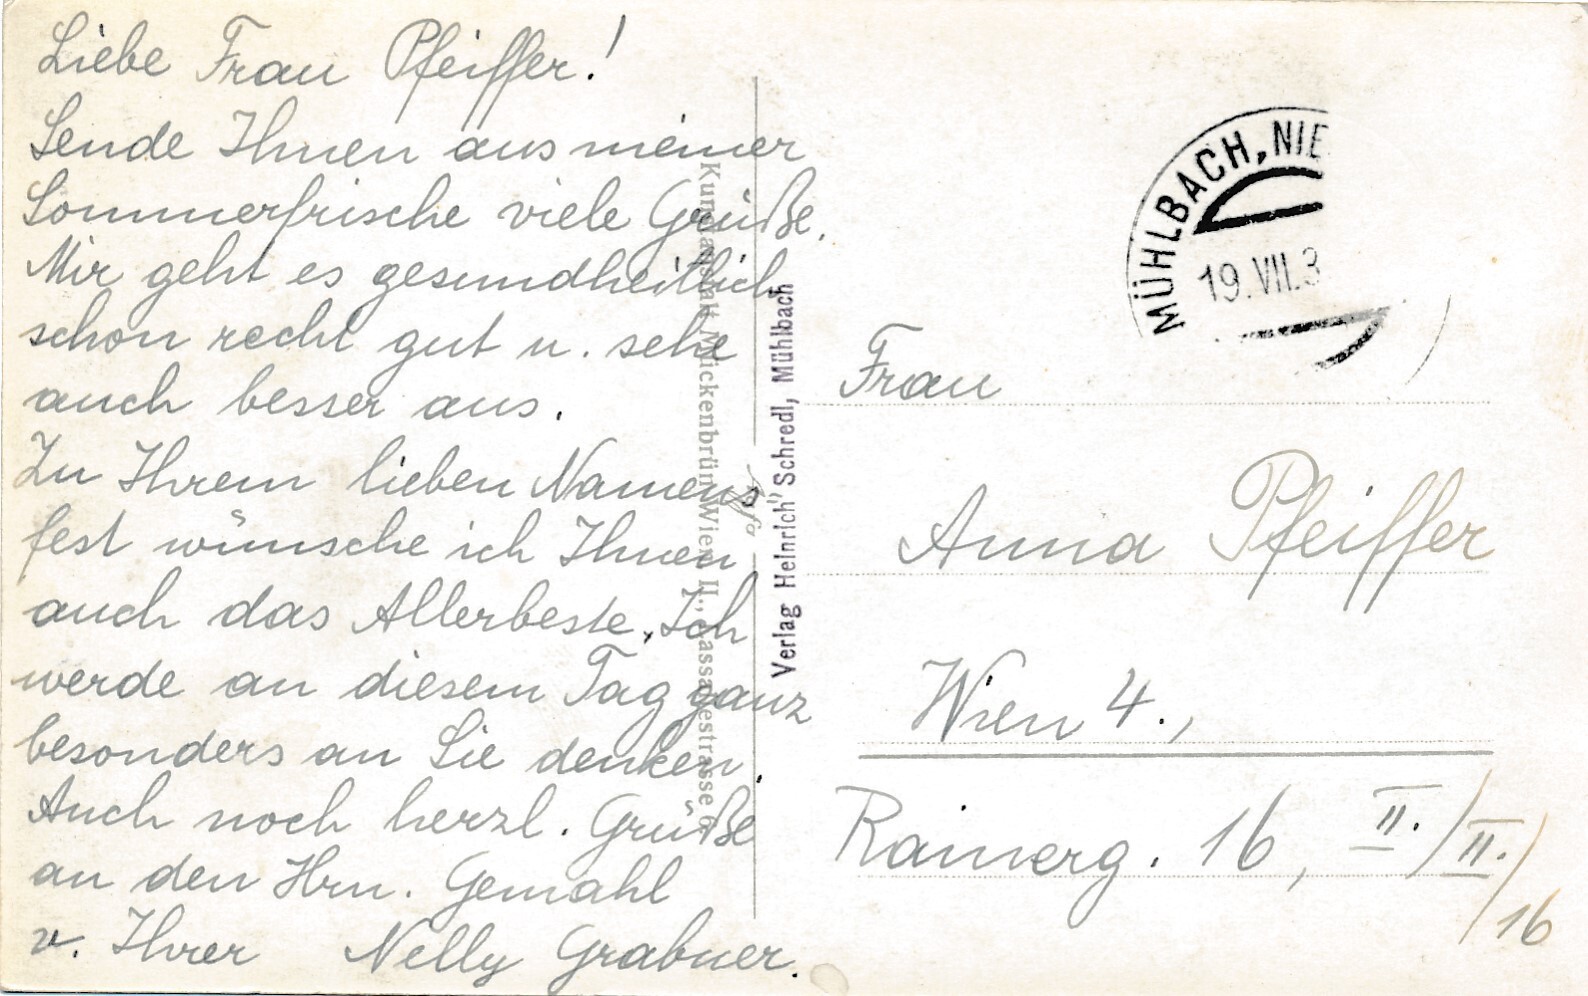 Liebe Frau Pfeiffer!
Sende Ihnen aus meiner
Sommerfrische viele Grüße.
Mir geht es gesundheitlich
schon recht gut u. sehe
auch besser aus.
Zu Ihrem lieben Namens
fest wünsche ich Ihnen
auch das Allerbeste. Ich
werde an diesem Tag ganz
besonders an Sie denken.
Auch noch herzl. Grüße
an den Hrn. Gemahl
v. Ihrer Nelly Grabner.
Kunstanstalt Mückenbrünn Wien II.,
Verlag Heinrich Schredl, Mühlbach
MÜHLBACH, NIE
19.VII.3
Frau
Anna Pfeiffer
Wien 4.,
Rainerg. 16, II./II./16